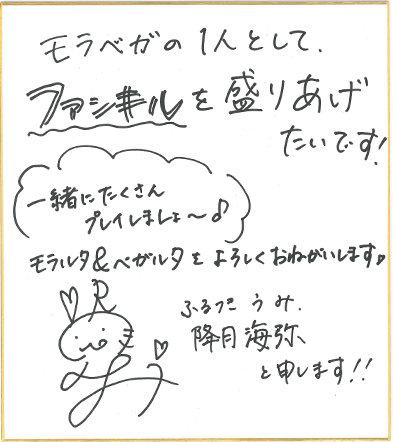 モラベガの1人として、
ファンキルを盛りあげ
たいです!
一緒にたくさん
プレイしましょ〜♪
モラルタ&ベガルタをよろしくおねがいします♪
ふるつき うみ.
降月海弥
と申します!!